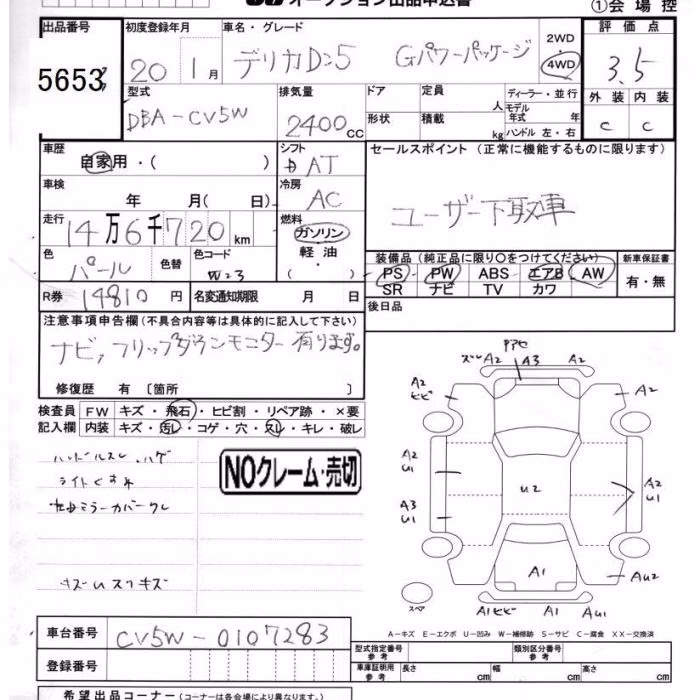 オークション出品申込書
①会場控
出品番号
5653
初度登録年月
20 1月
車名・グレード
デリカD:5 Gパワーパッケージ
2WD
4WD
評価点
3.5
外装 内装
C C
型式
DBA-CV5W
排気量
2400CC
ドア
定員
人
ディーラー・並行
モデル年式 年式
形状
積載
kg
ハンドル 左・右
車歴
自家用・( )
シフト
AT
セールスポイント(正常に機能するものに限ります)
ユーザー下取車
車検
年 月( 日)
冷房
AC
走行
14万6千720km
燃料
ガソリン
軽油・
( )
色
パール
色替
色コード
W23
装備品(純正品に限り○をつけてください)
PS PW ABS エアB AW
SR ナビ TV カワ
新車保証書
有・無
R券
14810円
名変通知期限 月 日
後日品
注意事項申告欄(不具合内容等は具体的に記入して下さい)
ナビ,フリップダウンモニター有ります。
修復歴 有〔箇所 〕
検査員記入欄
FW キズ・飛石・ヒビ割・リペア跡・×要
内装 キズ・汚レ・コゲ・穴・スレ・キレ・破レ
ハンドルスレ、ハゲ
ライトくすみ
キズUスリキズ
NOクレーム・売切
A2 A3 A2
A2
ヒビ
A2
A2
U1
U2
A2
U1
A3
U1
A1
AU2
A1ヒビ A1 AU1
スペア
A-キズ E-エクボ U-凹み W-補修跡 S-サビ C-腐食 XX-交換済
車台番号
CV5W-0107283
登録番号
型式指定番号 参考
類別区分番号 参考
車庫証明用 参考
長さ cm 幅 cm 高さ cm
希望出品コーナー(コーナーは各会場により異なります。)